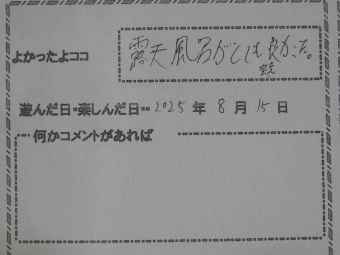 露天風呂がとても良かった。
よかったよココ
遊んだ日・楽しんだ日…2025年8月15日
何かコメントがあれば